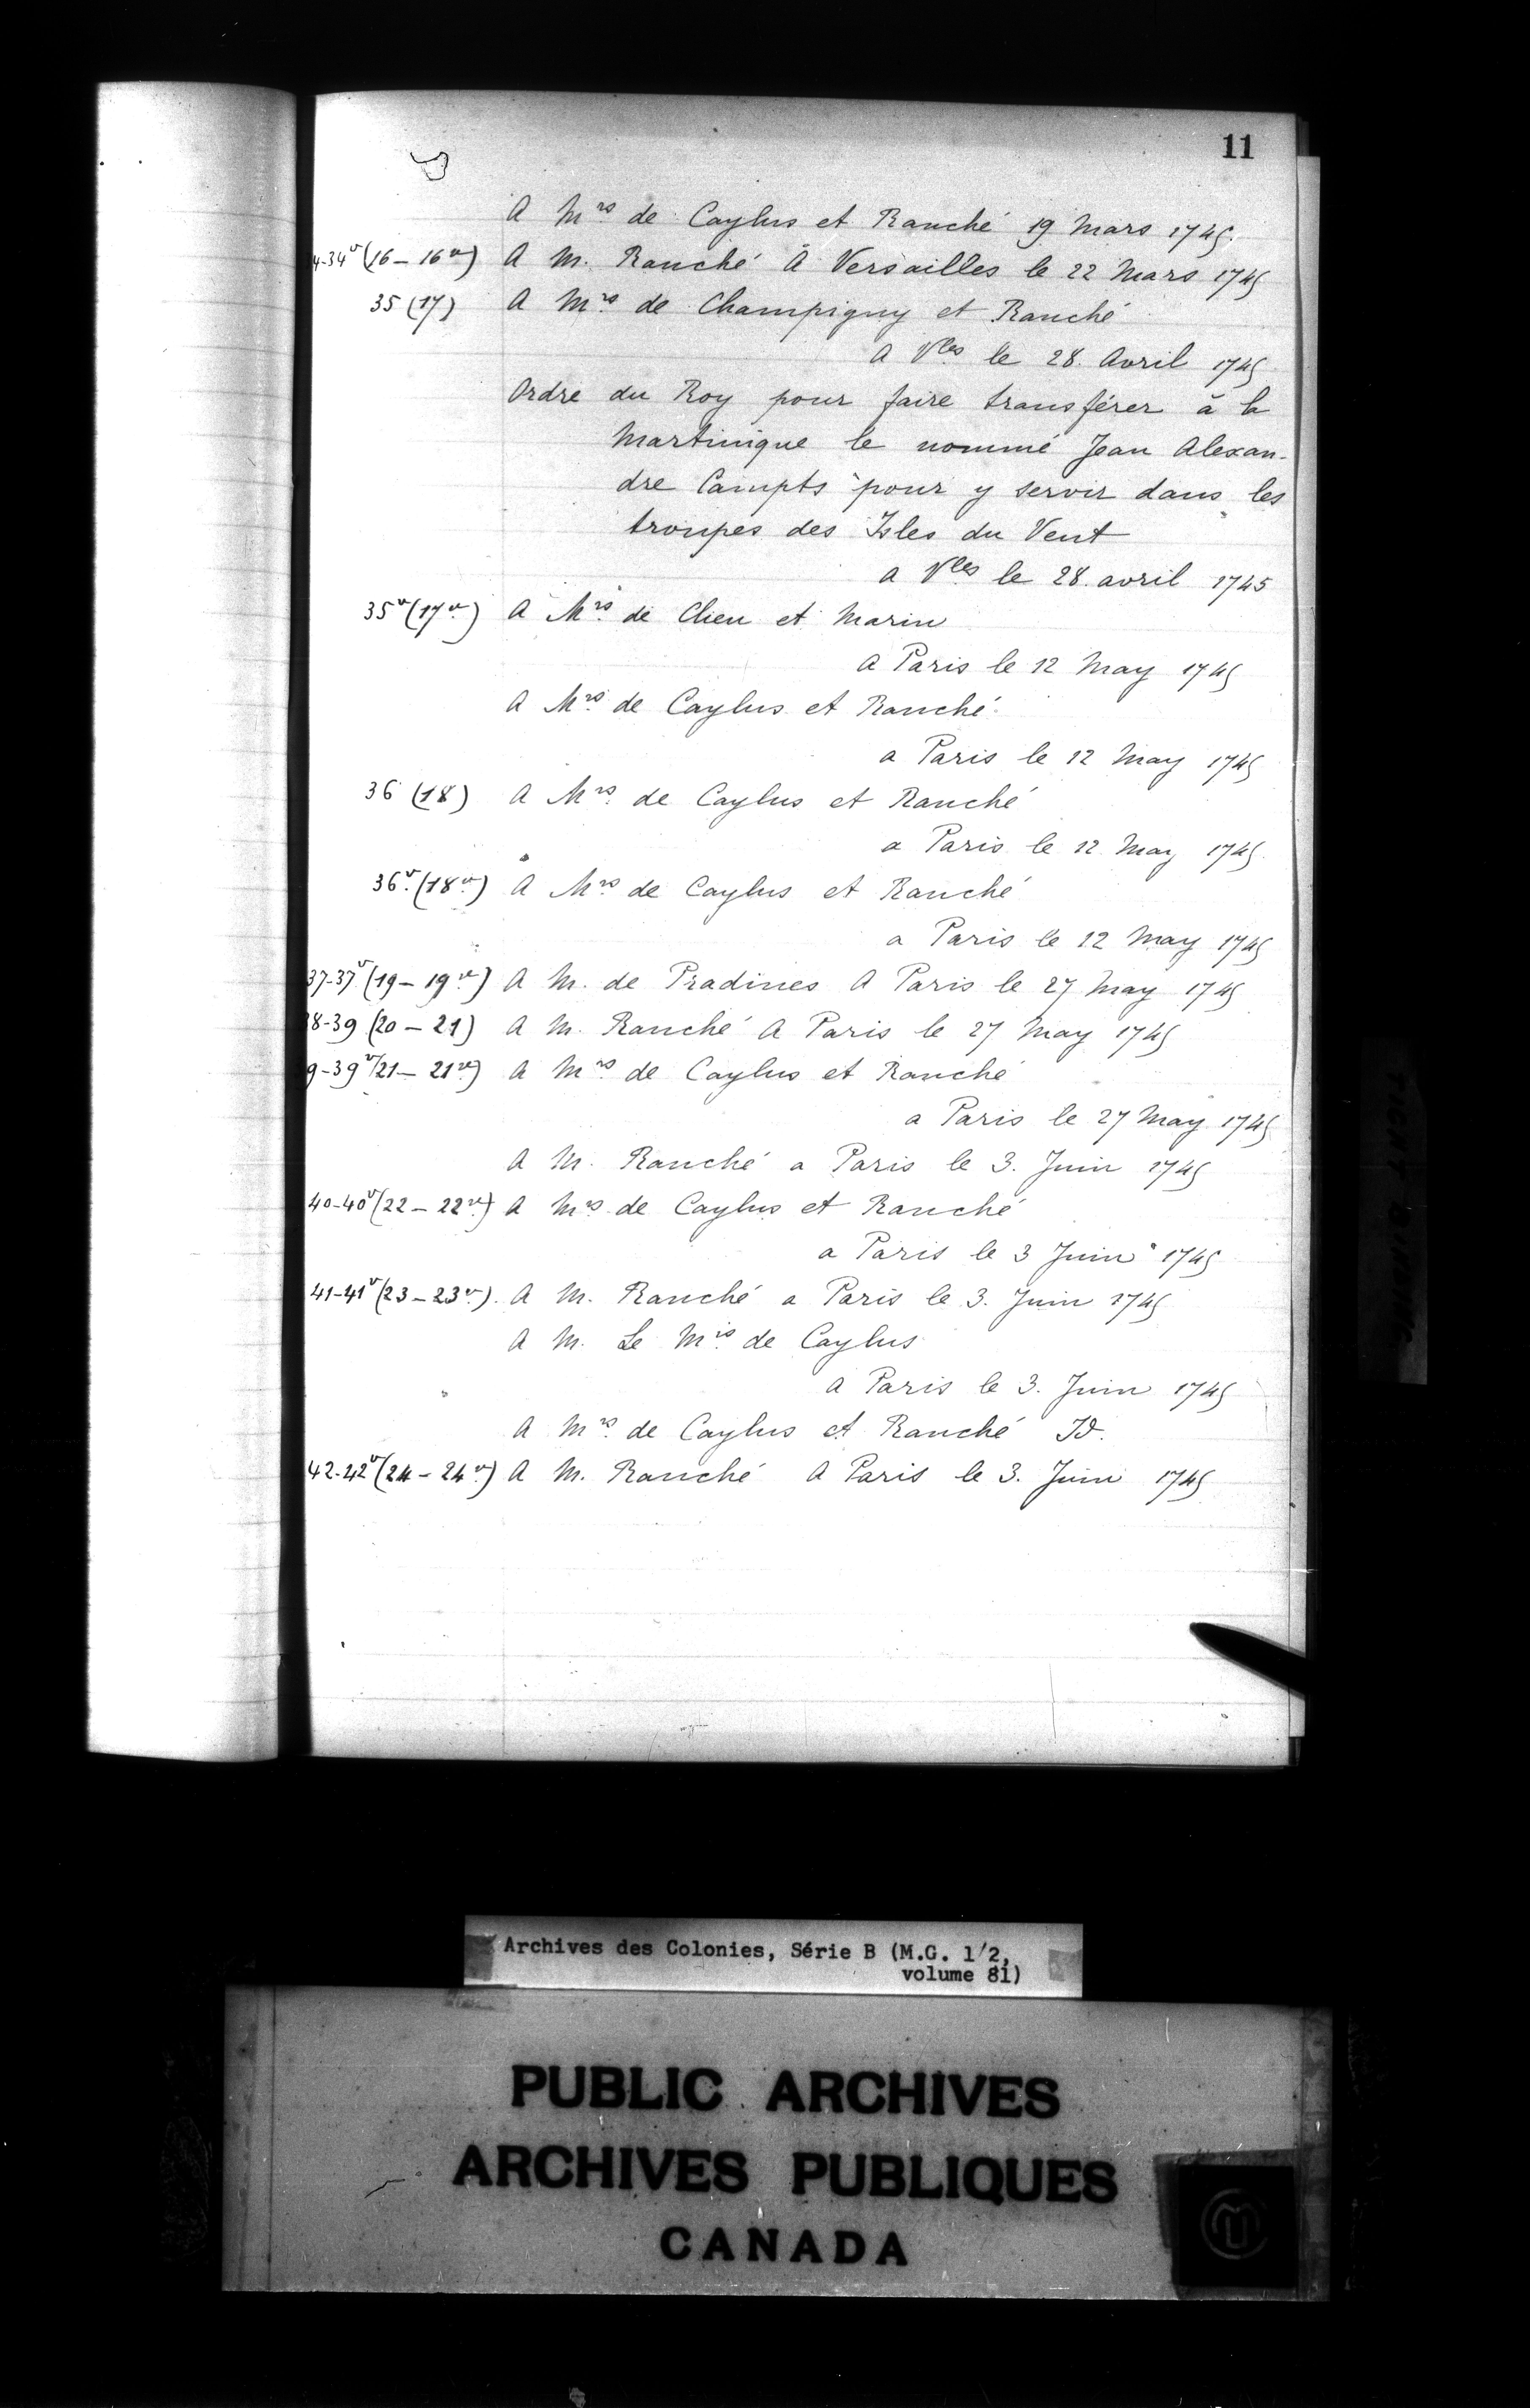 11
A Mrs de Caylus et Ranché 19 Mars 1745.
4-34v (16 - 16v) A M. Ranché A Versailles le 22 Mars 1745
35 (17) A Mrs de Champigny et Ranché
A Vles le 28. Avril 1745
Ordre du Roy pour faire transférer à la
Martinique le nommé Jean Alexan-
dre Campts pour y servir dans les
troupes des Isles du Vent
a Vles le 28. avril 1745
35v (17v) A Mrs de Clieu et Marin
A Paris le 12 May 1745
A Mrs de Caylus et Ranché
a Paris le 12 May 1745
36 (18) A Mrs de Caylus et Ranché
a Paris le 12 May 1745
36v (18v) A Mrs de Caylus et Ranché
a Paris le 12 May 1745
37-37v (19 - 19v) A M. de Pradines A Paris le 27 May 1745
38-39 (20 - 21) A M. Ranché A Paris le 27 May 1745
9-39v (21 - 21v) A Mrs de Caylus et Ranché
a Paris le 27 May 1745
A M. Ranché a Paris le 3. Juin 1745
40-40v (22 - 22v) A Mrs de Caylus et Ranché
a Paris le 3 Juin 1745
41-41v (23 - 23v). A M. Ranché a Paris le 3. Juin 1745
A M. Le Mis de Caylus
A Paris le 3. Juin 1745
A Mrs de Caylus et Ranché Id.
42-42v (24 - 24v) A M. Ranché A Paris le 3. Juin 1745
Archives des Colonies, Série B (M.G. 1/2,
volume 81)
PUBLIC ARCHIVES
ARCHIVES PUBLIQUES
CANADA